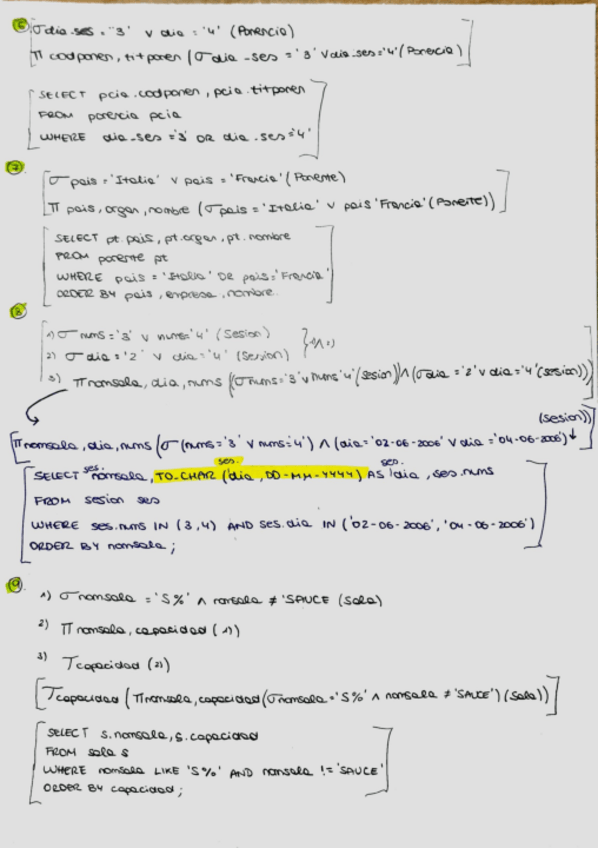 6 σ dia_ses = '3' ∨ dia = '4' (Ponencia)
Π codponen, titponen (σ dia_ses = '3' ∨ dia_ses = '4' (Ponencia)
SELECT pcia.codponen, pcia.titponen
FROM ponencia pcia
WHERE dia_ses = '3' OR dia_ses = '4'
7
σ pais = 'Italia' ∨ pais = 'Francia' (Ponente)
Π pais, organ, nombre (σ pais = 'Italia' ∨ pais 'Francia' (Ponente))
SELECT pt.pais, pt.organ, pt.nombre
FROM ponente pt
WHERE pais = 'Italia' OR pais = 'Francia'
ORDER BY pais, empresa, nombre.
8
1) σ nums = '3' ∨ nums = '4' (Sesion)
2) σ dia = '2' ∨ dia = '4' (Sesion) } 1∧2)
3) Π nomsala, dia, nums ((σ nums = '3' ∨ nums '4' (sesion)) ∧ (σ dia = '2' ∨ dia = '4' (sesion)))
(sesion))
Π nomsala, dia, nums (σ (nums = '3' ∨ nums = '4') ∧ (dia = '02-06-2006' ∨ dia = '04-06-2006')
SELECT ses.nomsala, TO_CHAR (ses.dia, DD-MM-YYYY) AS dia, ses.nums
FROM sesion ses
WHERE ses.nums IN (3,4) AND ses.dia IN ('02-06-2006', '04-06-2006')
ORDER BY nomsala;
9.
1) σ nomsala = 'S%' ∧ nomsala ≠ 'SAUCE (Sala)
2) Π nomsala, capacidad (1)
3) T capacidad (2)
T capacidad (Π nomsala, capacidad (σ nomsala = 'S%' ∧ nomsala ≠ 'SAUCE') (Sala))
SELECT s.nomsala, s.capacidad
FROM sala s
WHERE nomsala LIKE 'S%' AND nomsala != 'SAUCE'
ORDER BY capacidad;